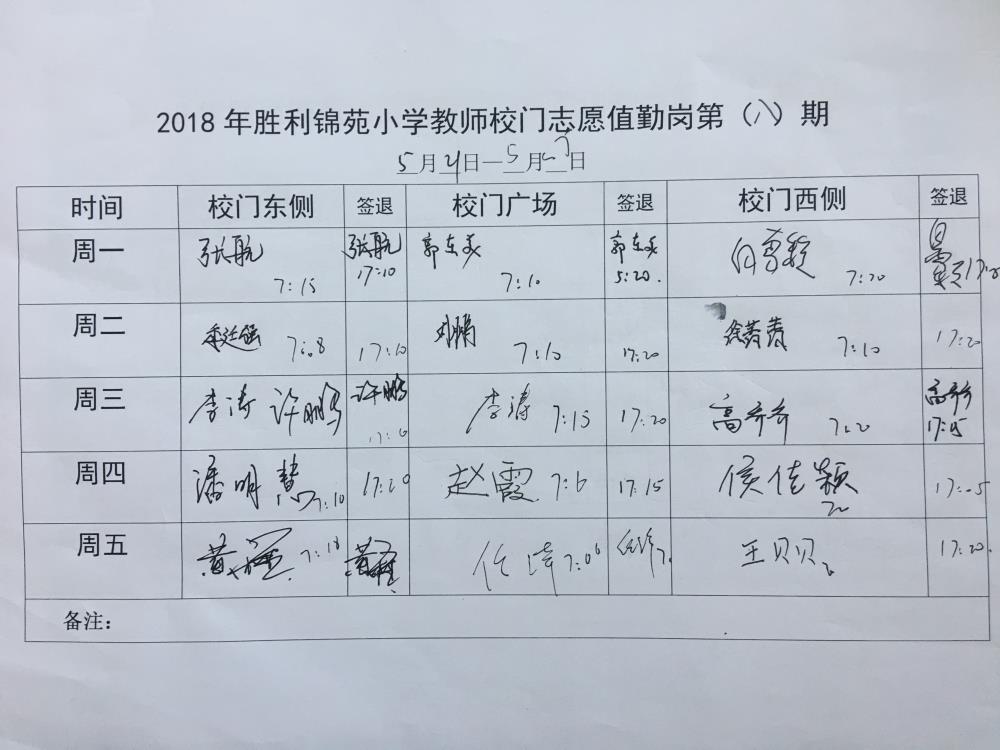 2018年胜利锦苑小学教师校门志愿值勤岗第（八）期
5月21日—5月 日
时间 校门东侧 签退 校门广场 签退 校门西侧 签退
周一 张航 7:15 张航 17:10 郭东美 7:10 郭东美 5:20. 7:20
周二 7:08 17:10 刘鹏 7:10 17:20 徐菁菁 7:10 17:20
周三 李涛 许鹏 许鹏 李涛 7:15 17:20 高齐齐 7:20 高齐齐 17:15
周四 潘明慧 7:10 17:20 赵霞 7:6 17:15 侯佳颖 17:05
周五 7:18 任 7:06 王贝贝 17:20
备注：